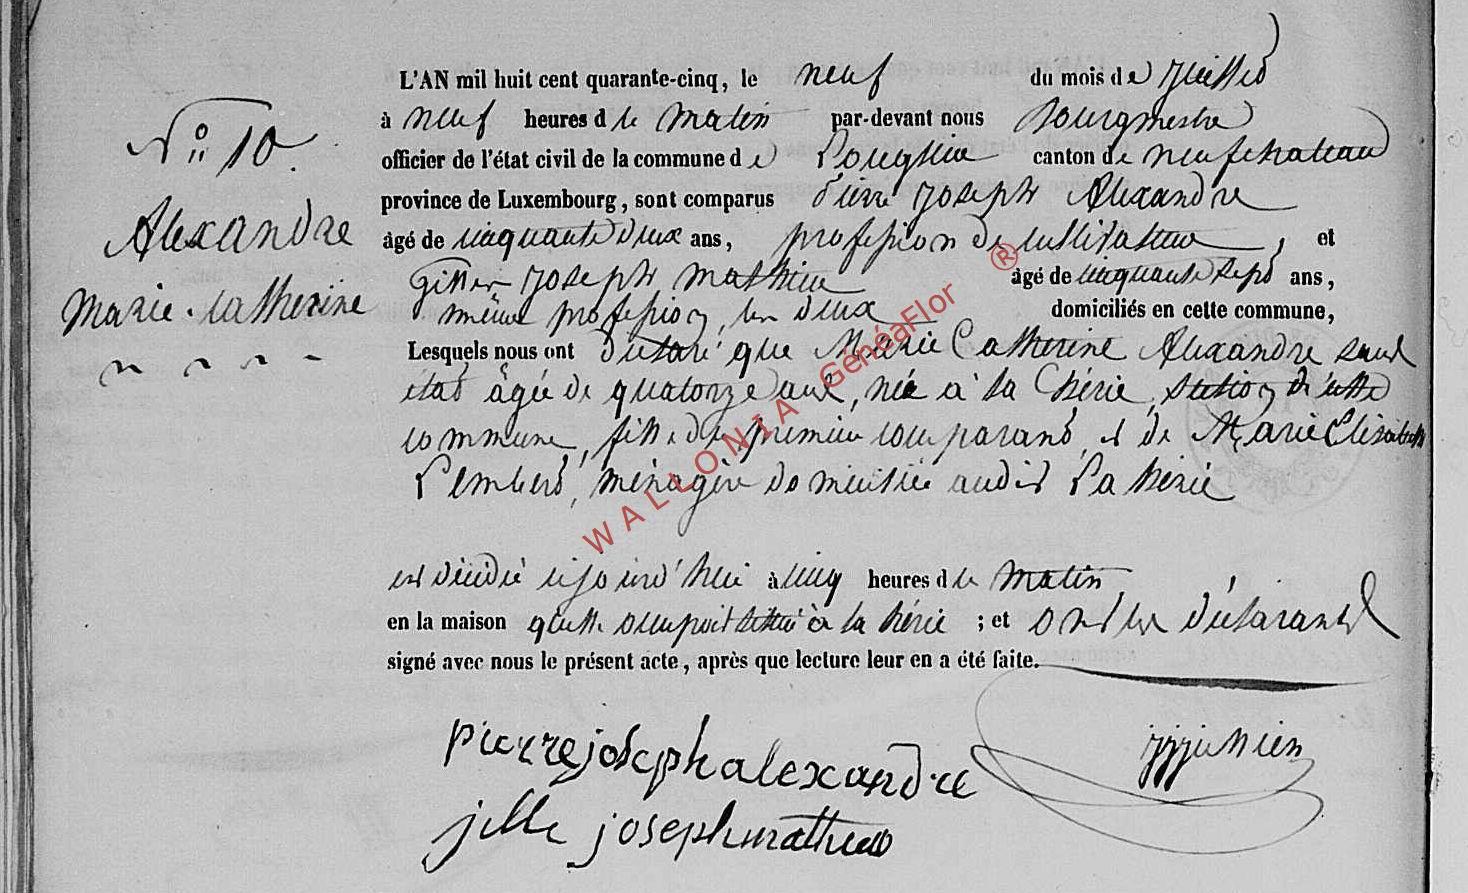 N° 10.
Alexandre
Marie-Catherine
L'AN mil huit cent quarante-cinq, le neuf du mois de juillet
à neuf heures d le matin par-devant nous Bourgmestre
officier de l'état civil de la commune de Longlier canton de neufchateau
province de Luxembourg, sont comparus Pierre Joseph Alexandre
âgé de cinquante deux ans, profession de cultivateur, et
Gilles Joseph Mathieu âgé de cinquante sept ans,
même profession, les deux domiciliés en cette commune,
Lesquels nous ont déclaré que Marie Catherine Alexandre sans
état âgée de quatorze ans, née à la Hérie, section de cette
commune, fille du premier comparant, et de Marie Elisabeth
Lambert, ménagère domiciliée audit La hérie
est décédé cejourd'hui à cinq heures d le matin
en la maison qu'elle occupoit à la hérie ; et ont les déclarants
signé avec nous le présent acte, après que lecture leur en a été faite.
pierre joseph alexandre
jille joseph mathieu
WALLONIA GénéaFlor ®